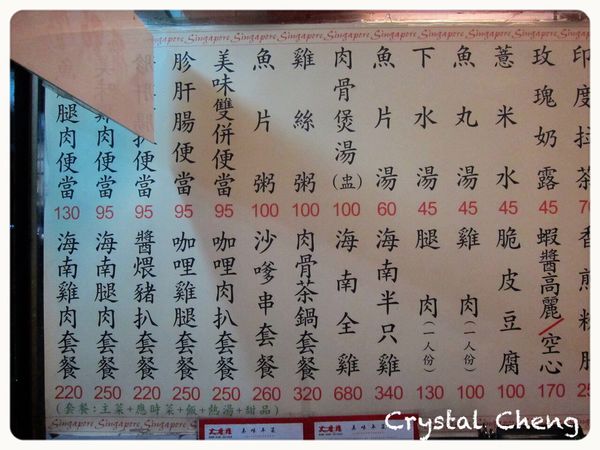 Singapore Singapore Singapore Singapore Singapore Singapore
腿肉便當 130
雞肉便當 95
扒便當 95
胗肝腸便當 95
美味雙併便當 95
魚片粥 100
雞絲粥 100
肉骨煲湯(盅) 100
魚片湯 60
下水湯 45
魚丸湯 45
薏米水 45
玫瑰奶露 45
印度拉茶
海南雞肉套餐 220
海南腿肉套餐 250
醬煨豬扒套餐 220
咖哩雞腿套餐 250
咖哩肉扒套餐 250
沙嗲串套餐 260
肉骨茶鍋套餐 320
海南全雞 680
海南半只雞 340
腿肉(一人份) 130
雞肉(一人份) 100
脆皮豆腐 100
蝦醬高麗/空心 170
香煎粉腸
(套餐:主菜+應時菜+飯+熱湯+甜品)
Singapore Singapore Singapore
美味平菜
Crystal Cheng